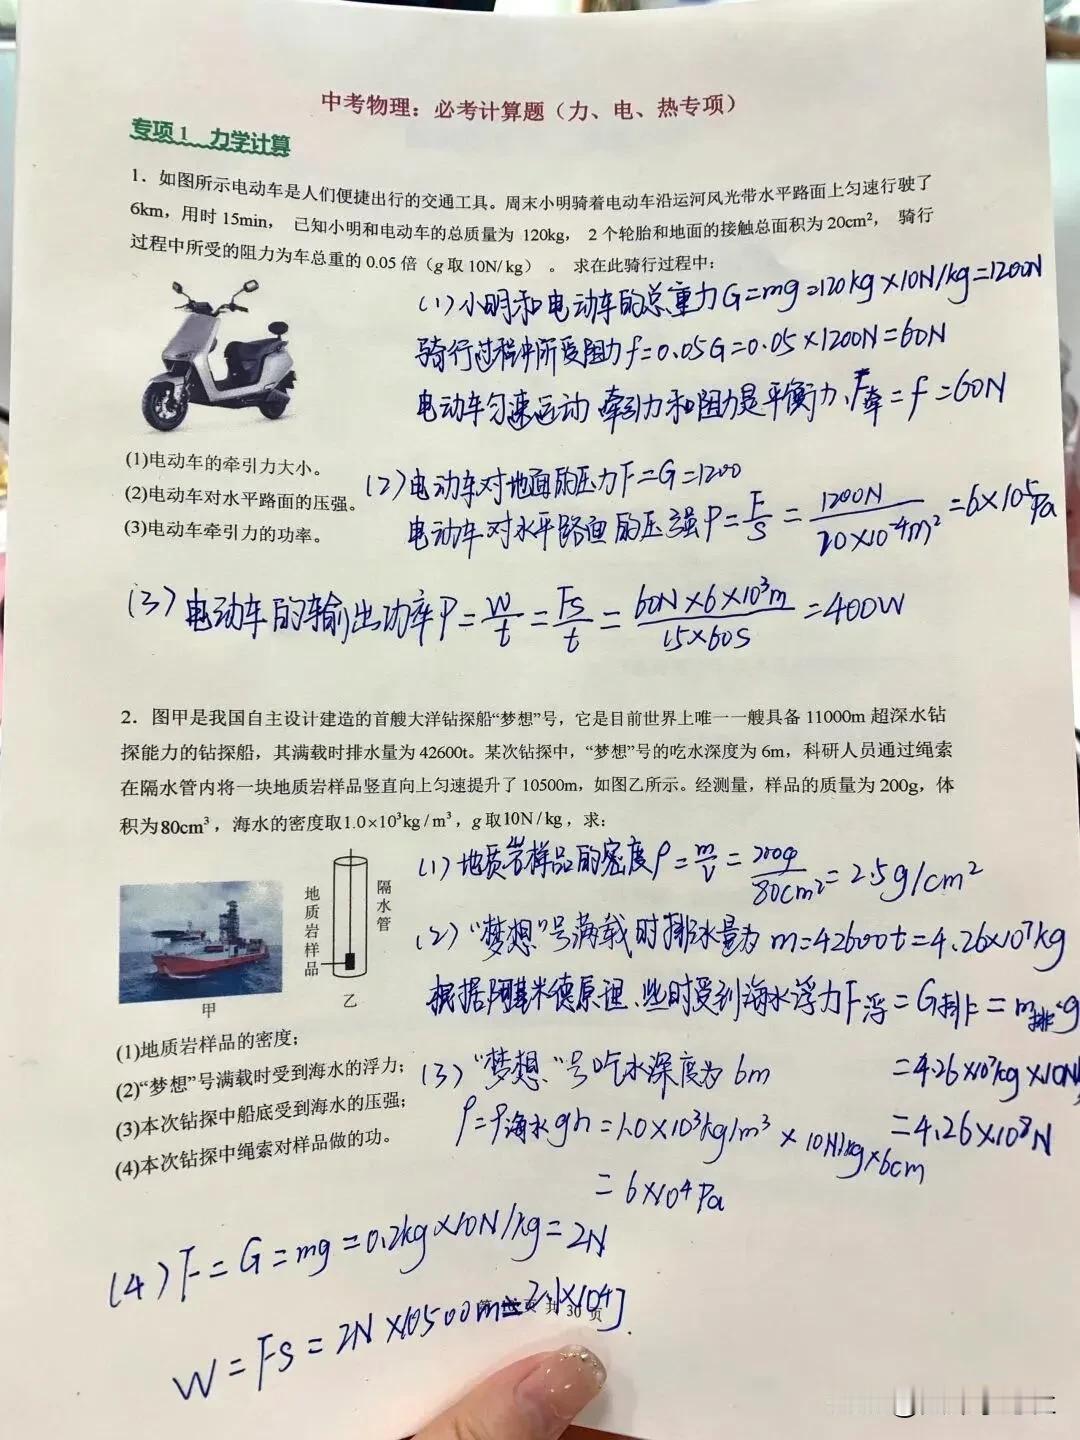 中考物理：必考计算题（力、电、热专项）
专项1 力学计算
1. 如图所示电动车是人们便捷出行的交通工具。周末小明骑着电动车沿运河风光带水平路面上匀速行驶了
6km，用时15min， 已知小明和电动车的总质量为 120kg， 2个轮胎和地面的接触总面积为20cm²， 骑行
过程中所受的阻力为车总重的0.05倍（g取10N/kg）。 求在此骑行过程中：
(1)小明和电动车的总重力G=mg=120kg×10N/kg=1200N
骑行过程中所受阻力f=0.05G=0.05×1200N=60N
电动车匀速运动 牵引力和阻力是平衡力，F牵=f=60N
(1)电动车的牵引力大小。
(2)电动车对水平路面的压强。
(3)电动车牵引力的功率。
(2)电动车对地面的压力F=G=1200
电动车对水平路面的压强P=F/S=1200N/20×10⁻⁴m²=6×10⁵Pa
(3)电动车的输出功率P=W/t=Fs/t=60N×6×10³m/15×60S=400W
2. 图甲是我国自主设计建造的首艘大洋钻探船“梦想”号，它是目前世界上唯一一艘具备11000m超深水钻
探能力的钻探船，其满载时排水量为42600t。某次钻探中，“梦想”号的吃水深度为6m，科研人员通过绳索
在隔水管内将一块地质岩样品竖直向上匀速提升了10500m，如图乙所示。经测量，样品的质量为200g，体
积为80cm³，海水的密度取1.0×10³kg/m³，g取10N/kg，求：
(1)地质岩样品的密度ρ=m/V=200g/80cm²=2.5g/cm²
地质岩样品
隔水管
甲
乙
(2)“梦想”号满载时排水量为m=42600t=4.26×10⁷kg
根据阿基米德原理，此时受到海水浮力F浮=G排=m排g
=4.26×10⁷kg×10N
=4.26×10⁸N
(1)地质岩样品的密度；
(2)“梦想”号满载时受到海水的浮力；
(3)本次钻探中船底受到海水的压强；
(4)本次钻探中绳索对样品做的功。
(3)“梦想”号吃水深度为6m
P=ρ海水gh=1.0×10³kg/m³×10N/kg×6cm
=6×10⁴Pa
(4)F=G=mg=0.2kg×10N/kg=2N
W=Fs=2N×10500m=2.1×10⁴J
共 30 页